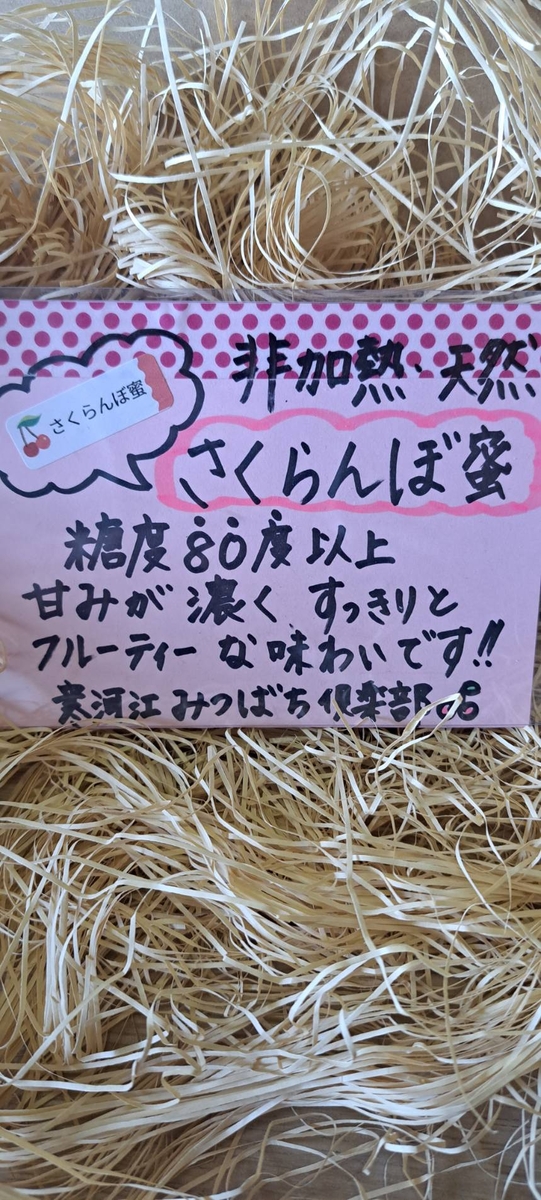 非加熱、天然
さくらんぼ蜜
さくらんぼ蜜
糖度80度以上
甘みが濃く すっきりと
フルーティーな味わいです!!
寒河江みつばち倶楽部